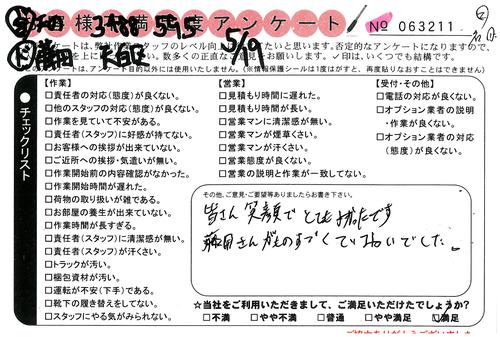 様満足度アンケート
№ 063211
5/9
ートは、弊社作業スタッフのレベル向上
たいと思います。否定的なアンケートになりますので、
しにくいと
数多くの正直なご意見をお願いします。✓印は、いくつでも結構です。
ートは、アンケート目的以外には使用いたしません。(※情報保護シールは1度がすと、再度貼りなおすことはできません)
チェックリスト
【作業】
□責任者の対応(態度)が良くない。
□他のスタッフの対応(態度)が良くない。
□作業を見ていて不安がある。
□責任者(スタッフ)に好感が持てない。
□お客様への挨拶が出来ていない。
□ご近所への挨拶・気遣いが無い。
□作業開始前の内容確認がなかった。
□作業開始時間が遅れた。
□荷物の取り扱いが雑である。
□お部屋の養生が出来ていない。
□作業時間が長すぎる。
□責任者(スタッフ)に清潔感が無い。
□責任者(スタッフ)が汗くさい。
□トラックが汚い。
□梱包資材が汚い。
□運転が不安(下手)である。
□靴下の履き替えをしてない。
□スタッフにやる気がみられない。
【営業】
□見積もり時間に遅れた。
□見積もり時間が長い。
□営業マンに清潔感が無い。
□営業マンが煙草くさい。
□営業マンが汗くさい。
□営業態度が良くない。
□営業の説明と作業が一致してない。
【受付・その他】
□電話の対応が良くない。
□オプション業者の説明
・作業が良くない。
□オプション業者の対応
(態度)が良くない。
その他、ご意見・ご要望等ありましたらお書き下さい。
皆さん笑顔でとても良かったです
藤田さんがものすごくていねいでした。
☆当社をご利用いただきまして、ご満足いただけたでしょうか?
□不満 □やや不満 □普通 □やや満足 ☑満足